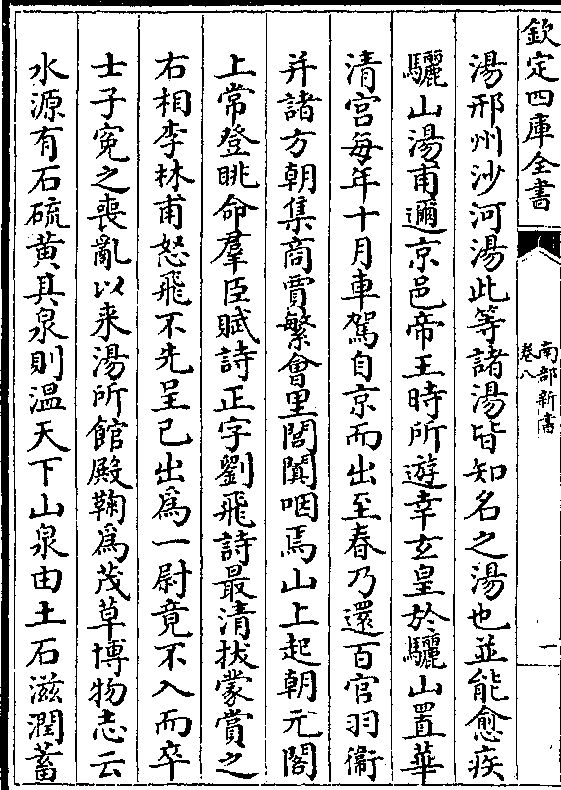 欽定四庫全書
南部新書
卷八
一
湯邢州沙河湯此等諸湯皆知名之湯也並能愈疾
驪山湯甫邇京邑帝王時所遊幸玄皇於驪山置華
清宮每年十月車駕自京而出至春乃還百官羽衞
并諸方朝集商賈繁會里閭闐咽焉山上起朝元閣
上常登眺命羣臣賦詩正字劉飛詩最清拔蒙賞之
右相李林甫怒飛不先呈已出爲一尉竟不入而卒
士子寃之喪亂以来湯所館殿鞠爲茂草博物志云
水源有石硫黄其泉則温天下山泉由土石滋潤蓄